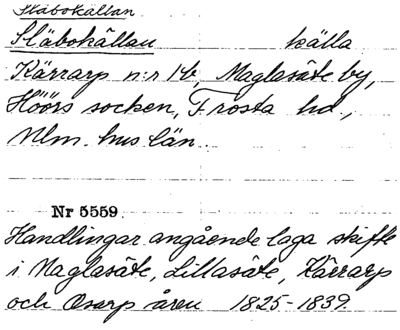 Släbokällan
Släbokällan källa
Kärrarp n:r 1b, Maglasäte by,
Höörs socken, Frosta hd,
Mlm. hus län.
Nr 5559
Handlingar angående laga skifte
i Maglasäte, Lillasäte, Kärrarp
och Osarp åren 1825-1839.